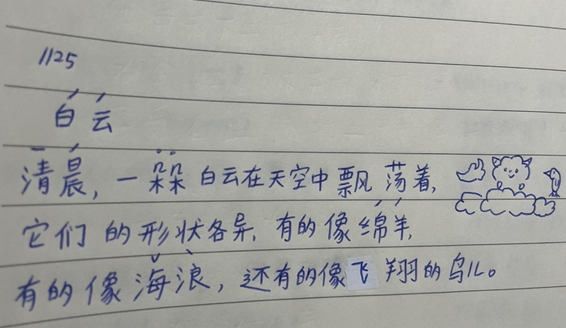 1125
白云
清晨，一朵朵白云在天空中飘荡着，
它们的形状各异，有的像绵羊，
有的像海浪，还有的像飞翔的鸟儿。